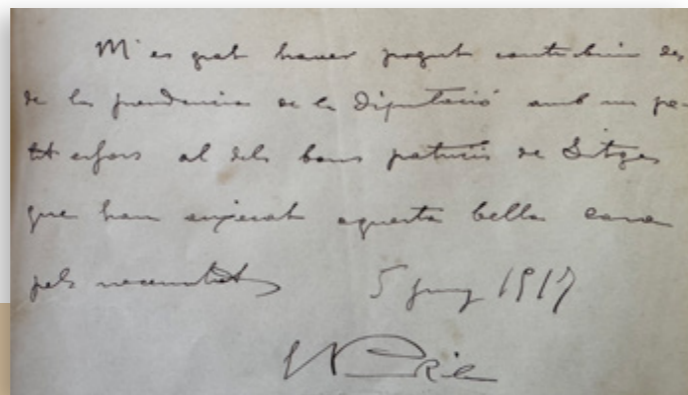 M'es grat haver pogut contribuir des
de la presidencia de la Diputació amb un pe-
tit esfors al dels bons patricis de Sitges
que han aixecat aquesta bella casa
pels necessitats 5 juny 1917